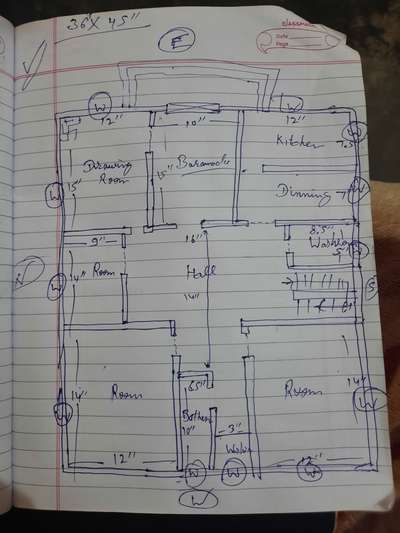 36 X 45"
classmate
Date
Page
E
W
W
12"
10"
12"
W
Kitchen
7.5
Drawing
Room
15"
15"
W
Dinning
W
8.5"
9"
16"
W
5"
N
14"
Room
Hall
W
14"
S
14"
Room
6.5"
Room
14"
W
W
10"
3"
12"
12"
W
W
W
W